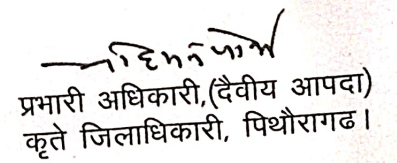 प्रभारी अधिकारी,(दैवीय आपदा)
कृते जिलाधिकारी, पिथौरागढ।